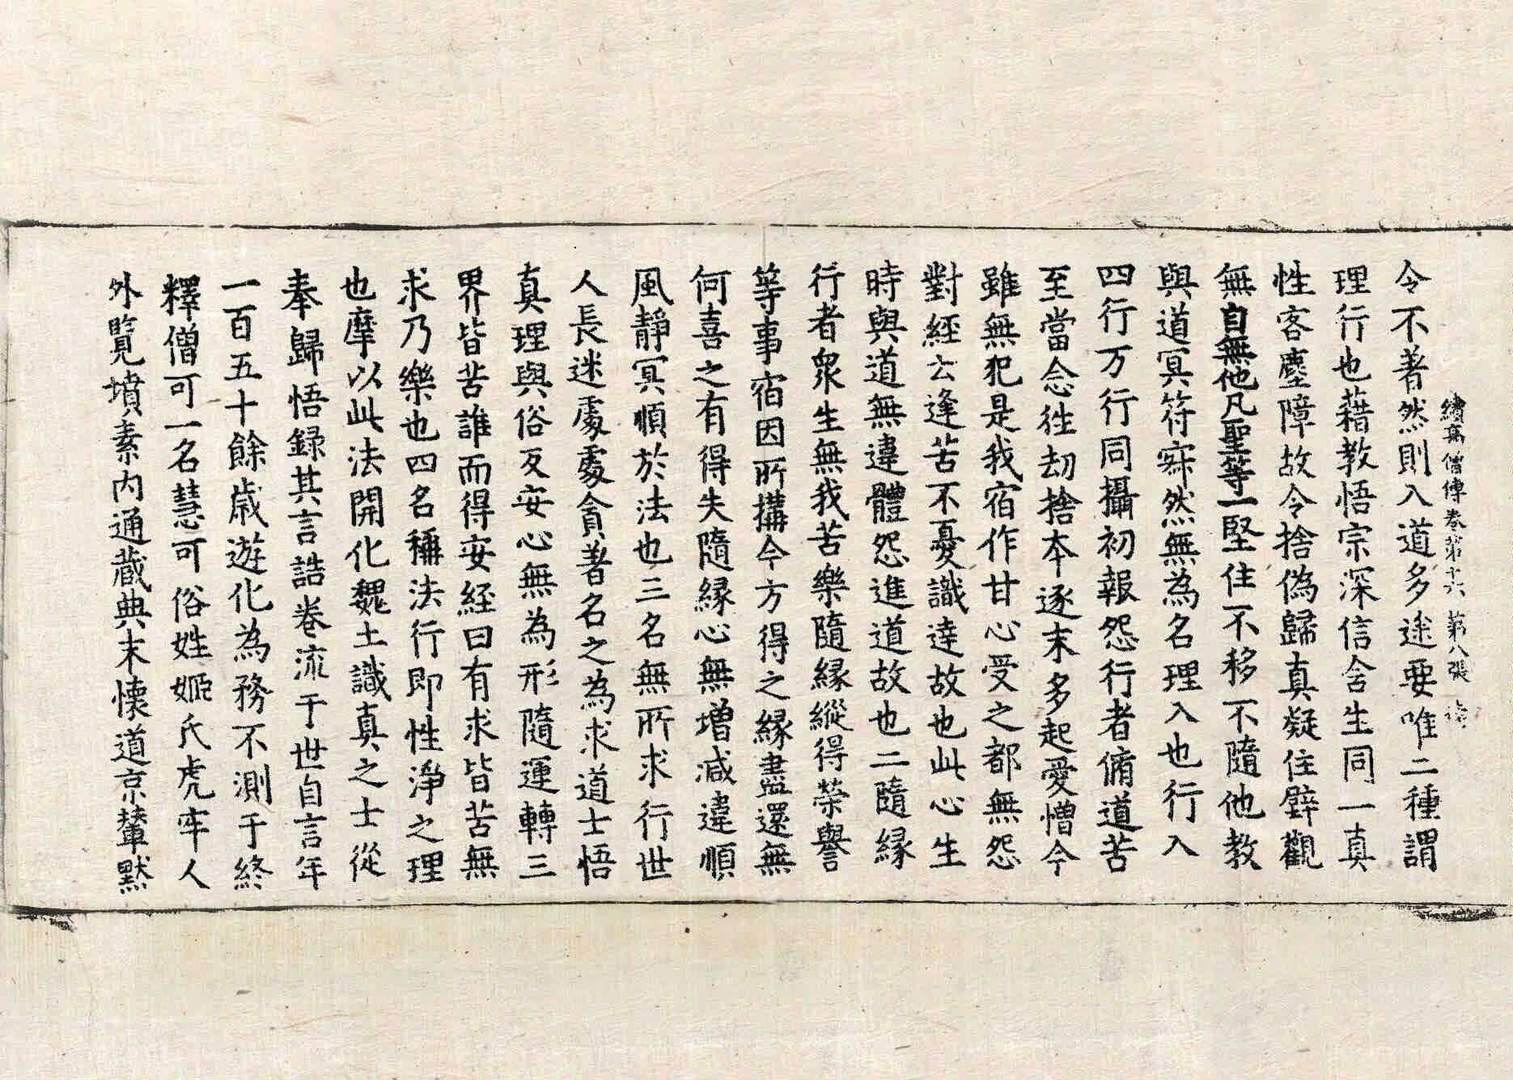 續高僧傳卷第十六 第八張
令不著然則入道多途要唯二種謂
理行也藉教悟宗深信含生同一真
性客塵障故令捨偽歸真疑住壁觀
無自無他凡聖等一堅住不移不隨他教
與道冥符寂然無為名理入也行入
四行万行同攝初報怨行者脩道苦
至當念往劫捨本逐末多起愛憎今
雖無犯是我宿作甘心受之都無怨
對經云逢苦不憂識達故也此心生
時與道無違體怨進道故也二隨緣
行者衆生無我苦樂隨緣縱得榮譽
等事宿因所搆今方得之緣盡還無
何喜之有得失隨緣心無增減違順
風靜冥順於法也三名無所求行世
人長迷處處貪著名之為求道士悟
真理與俗反安心無為形隨運轉三
界皆苦誰而得安經曰有求皆苦無
求乃樂也四名稱法行即性淨之理
也摩以此法開化魏土識真之士從
奉歸悟録其言誥卷流于世自言年
一百五十餘歳遊化為務不測于終
釋僧可一名慧可俗姓姬氏虎牢人
外覽墳素内通藏典末懷道京輦默